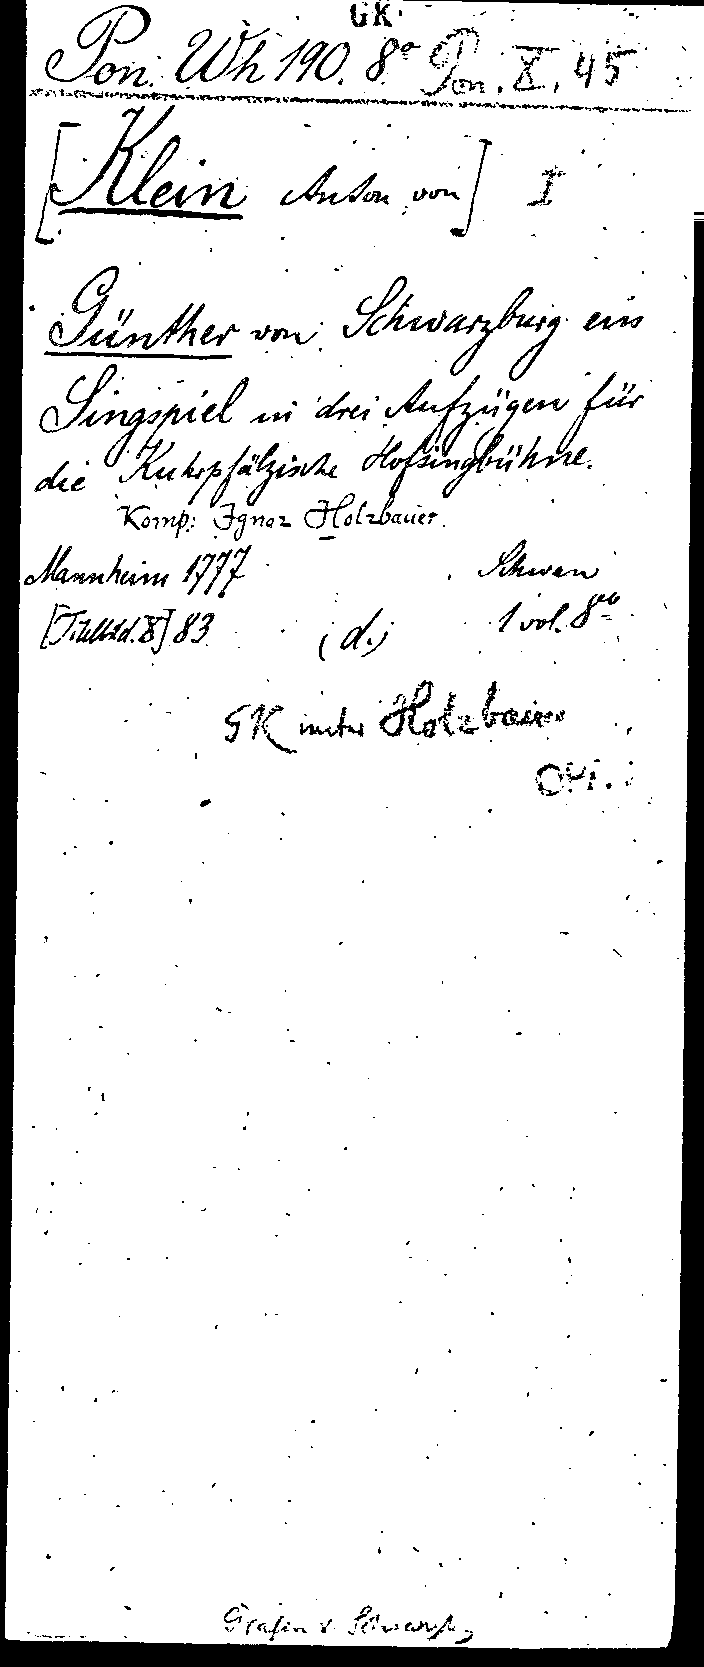 GK.
Pon. Wh 190. 8° Pon. X. 45
[Klein Anton von] I
Günther von Schwarzburg ein
Singspiel in drei Aufzügen für
die Kuhrpfälzische Hofsingbühne.
Komp: Ignaz Holzbauer.
Mannheim 1777 Schwan
83 (d.) 1 vol. 8°
GK unter Holzbauer
Grafen v. Schwarzbg